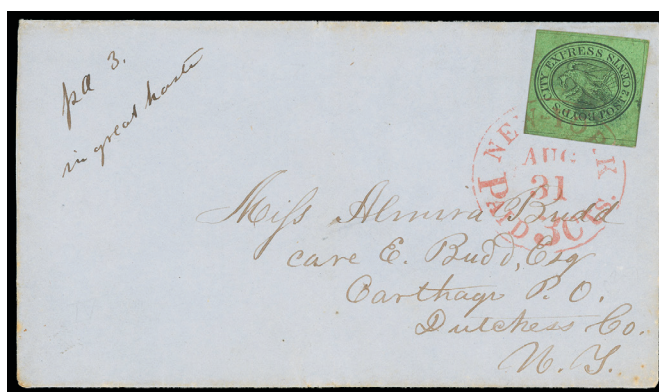 pd 3.
in great haste
BOYD'S CITY EXPRESS POST 2 CENTS
NEW YORK
AUG
31
PAID 3 CTS.
Miss Almira Budd
care E. Budd, Esq
Carthage P. O.
Dutchess Co.
N. Y.